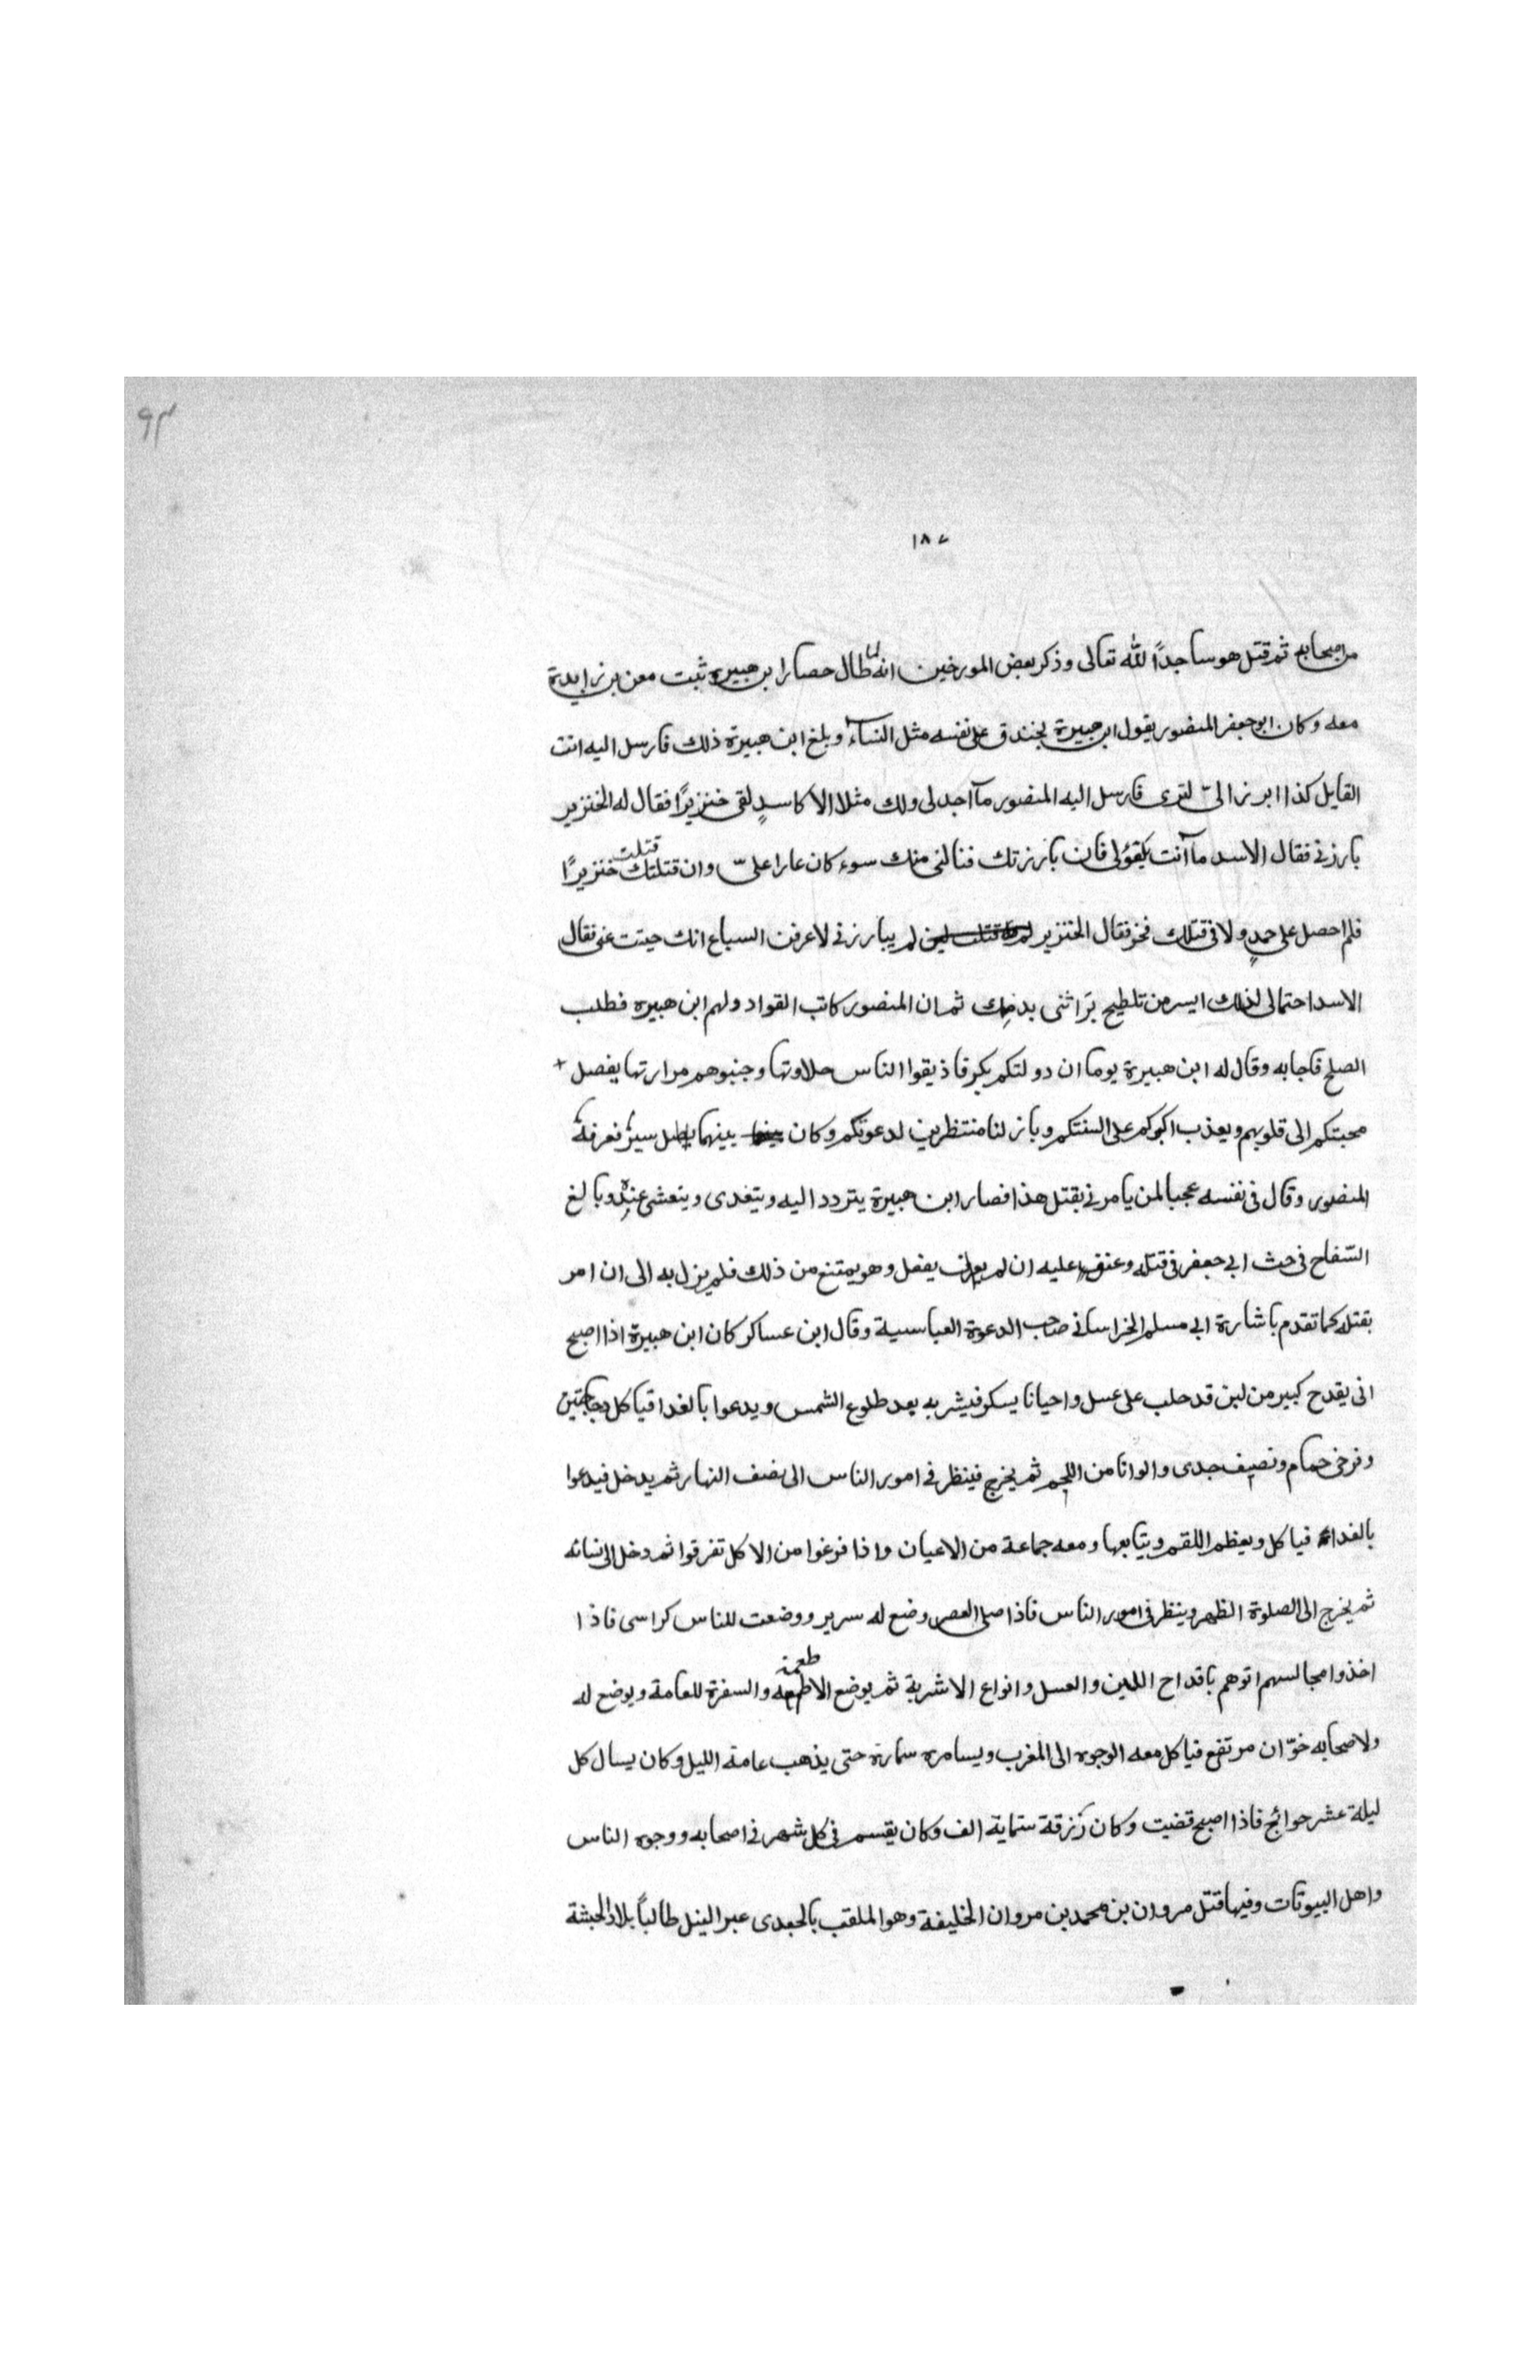 ٩٣
١٨٧
من اصحابه ثم قتل هو ساجدًا لله تعالى وذكر بعض المورخين انه لما طال حصار ابن هبيرة ثبت معن بن زايدة
معه وكان ابو جعفر المنصور يقول ابن هبيرة يخندق على نفسه مثل النساء وبلغ ابن هبيرة ذلك فارسل اليه انت
القايل كذا ابرز الىّ لترى فارسل اليه المنصور ما اجد لى ولك مثلا الا كاسدٍ لقى خنزيرًا فقال له الخنزير
بارزنى فقال الاسد ما انت بكفؤ لى فان بارزتك فنالنى منك سوء كان عارا علىّ وان قتلتك قتلت خنزيرًا
فلم احصل على حمدٍ ولا فى قتلك فخر فقال الخنزير لم يبارزنى لاعرفن السباع انك جبنت عنى فقال
الاسد احتمالى لذلك ايسر من تلطيح بَراثنى بدمِك ثم ان المنصور كاتب القواد ولهم ابن هبيره فطلب
الصلح فاجابه وقال له ابن هبيرة يوما ان دولتكم بكر فاذيقوا الناس حلاوتها وجنبوهم مرارتها يفصل
محبتكم الى قلوبهم ويعذب على السنتكم وبازلنا منتظرين لدعوتكم وكان بينهما سير فعرفة
المنصور وقال فى نفسه عجبا لمن يامرنى بقتل هذا فصار ابن هبيرة يتردد اليه ويتغدى ويتعشى عنده وبالغ
السّفاح فى حث ابى جعفر فى قتله وعنق عليه ان لم يفعل وهو يمتنع من ذلك فلم يزل به الى ان امر
بقتله كما تقدم باشارة ابى مسلم الخراسانى صاحب الدعوة العباسية وقال ابن عساكر كان ابن هبيرة اذا اصبح
اتى بقدح كبير من لبن قد حلب على عسل واحيانا بسكر فيشربه بعد طلوع الشمس ويدعوا بالغدا فياكل دجاجتين
وفرخى حمام ونصيف جدى والوانا من اللحم ثم يخرج فينظر فى امور الناس الى نصف النهار ثم يدخل فيدعوا
بالغداء فياكل ويعظم اللقم ويتابعها ومعه جماعة من الاعيان واذا فرغوا من الاكل تفرقوا ثم دخل الى نسائه
ثم يخرج الى الصلوة الظهر وينظر فى امور الناس فاذا صلى العصر وضع له سرير ووضعت للناس كراسى فاذا
اخذوا مجالسهم اتوهم باقداح اللبن والعسل وانواع الاشربة ثم يوضع الاطعمة والسفرة للعامة ويوضع له
ولاصحابه خوّان مرتفع فياكل معه الوجوه الى المغرب ويسامره سمارة حتى يذهب عامة الليل وكان يسال كل
ليلة عشر حوائج فاذا اصبح قضيت وكان رزقة ستماية الف وكان يقسم فى كل شهر فى اصحابه ووجوه الناس
واهل البيوتات وفيها قتل مروان بن محمد بن مروان الخليفة وهو الملقب بالجعدى عبر النيل طالباً بلاد الحبشة